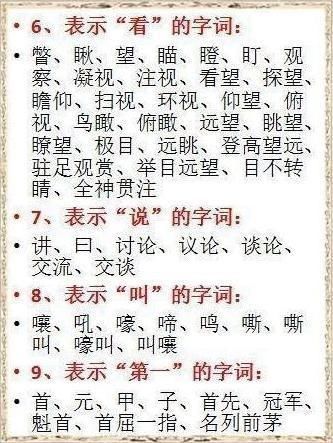 • 6、表示“看”的字词：
• 瞥、瞅、望、瞄、瞪、盯、观
察、凝视、注视、看望、探望、
瞻仰、扫视、环视、仰望、俯
视、鸟瞰、俯瞰、远望、眺望、
瞭望、极目、远眺、登高望远、
驻足观赏、举目远望、目不转
睛、全神贯注
• 7、表示“说”的字词：
• 讲、曰、讨论、议论、谈论、
交流、交谈
• 8、表示“叫”的字词：
• 嚷、吼、嚎、啼、鸣、嘶、嘶
叫、嚎叫、叫嚷
• 9、表示“第一”的字词：
• 首、元、甲、子、首先、冠军、
魁首、首屈一指、名列前茅